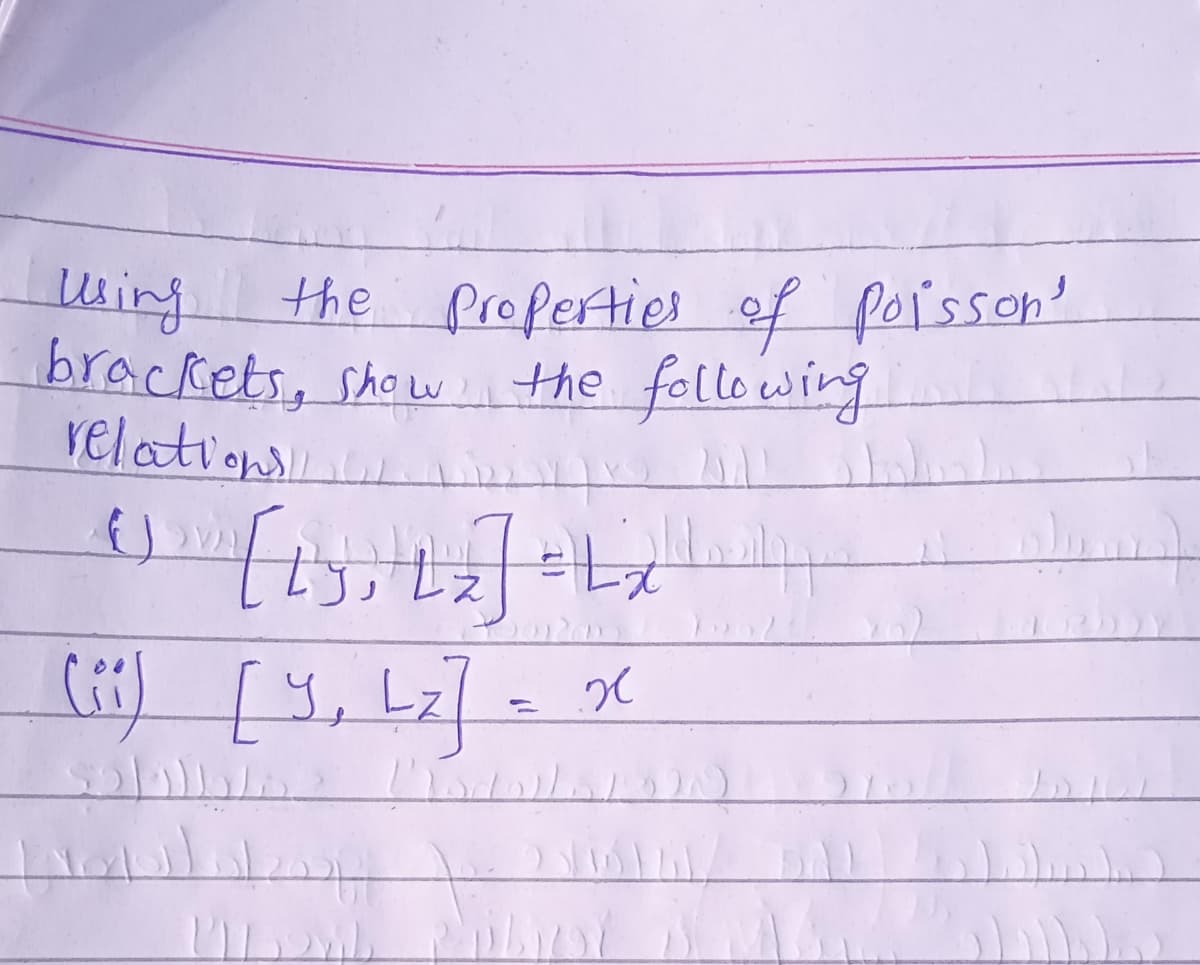 Using the Properties of Poisson'
brackets, show the following
relations
(i) [Ly, Lz] = Lx
(ii) [y, Lz] = x